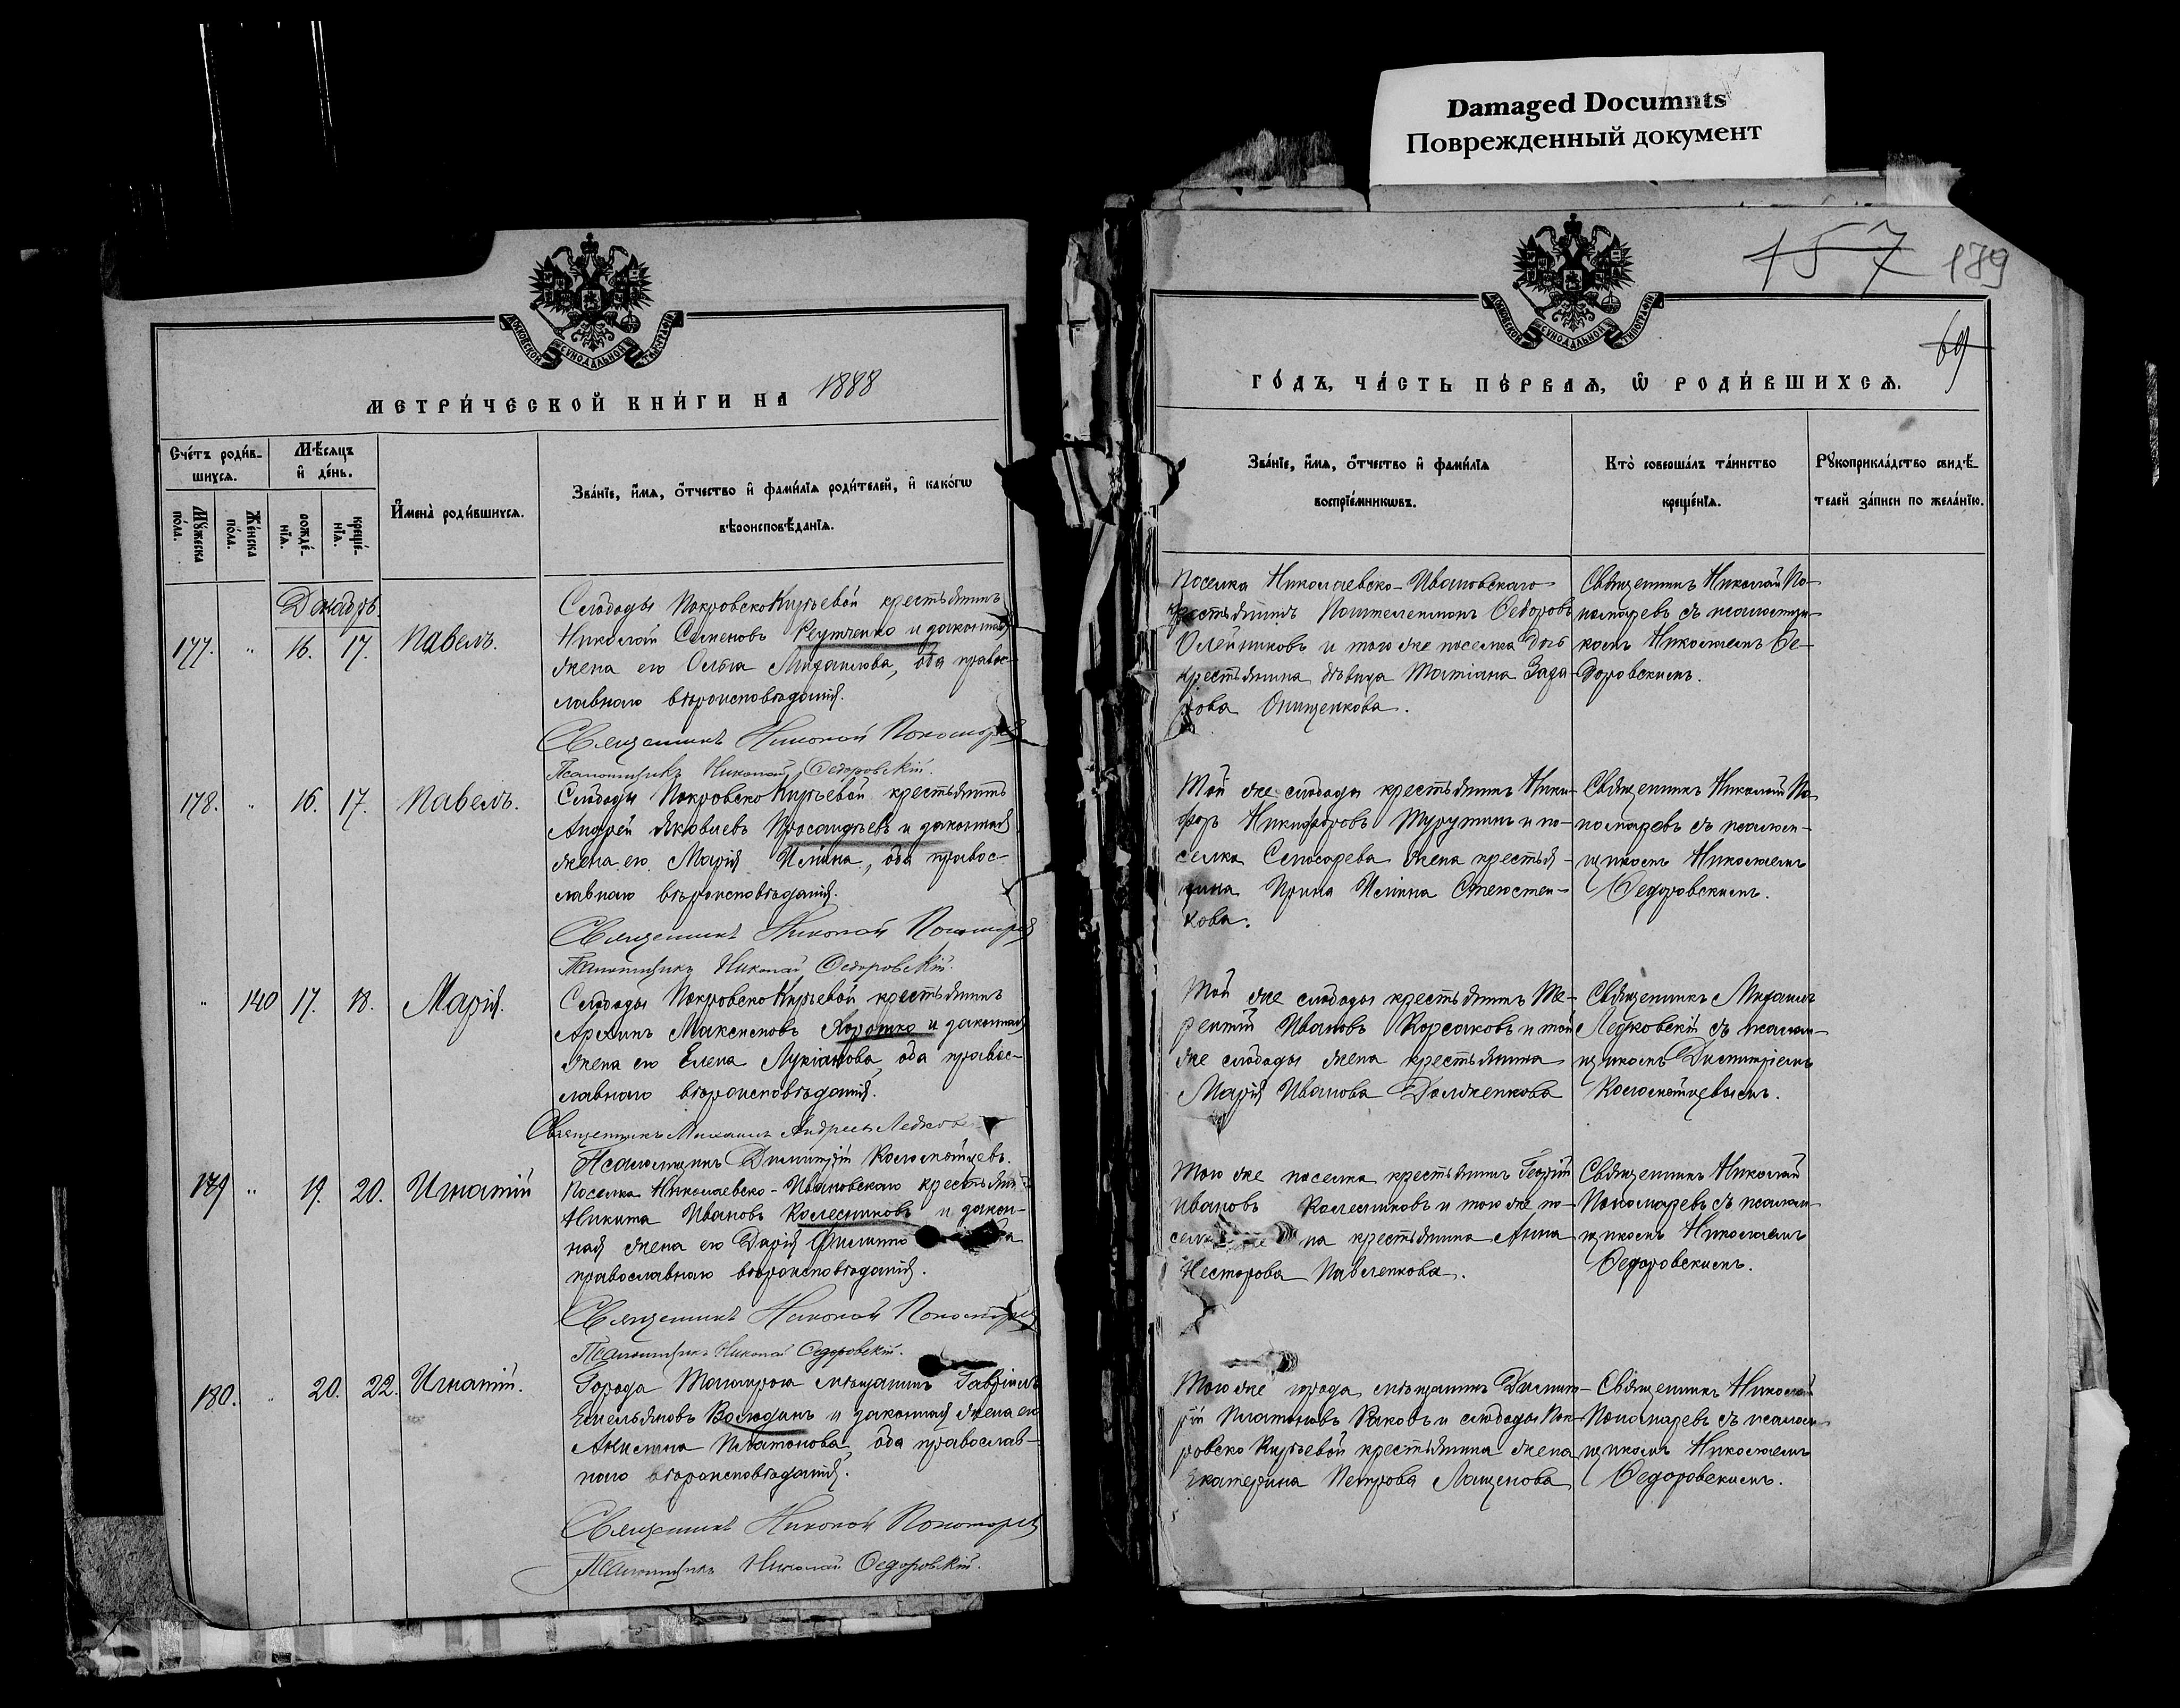 Damaged Documnts
Поврежденный документ
157 189
69
МОСКОВСКОЙ СѴНОДАЛЬНОЙ ТИПОГРАФІИ
МЕТРИ́ЧЕСКОЙ КНИ́ГИ НА 1888
Сче́тъ роди́в-
шихся.
Мѣ́сяцъ
и҆ де́нь.
И҆мена̀ роди́вшихся.
Зва́нїе, и҆́мя, ѻ҆́тчество и҆ фами́лїя роди́телей, и҆ како́гѡ
вѣроисповѣ́данїя.
Мꙋ́жеска
по́ла.
Же́нска
по́ла.
рожде́-
нїя.
креще́-
нїя.
Декабрь
177. " 16. 17. Павелъ.
Слободы Покровско Кирѣевой крестьянинъ
Николай Семеновъ Реутченко и законная
жена его Ольга Михаилова, оба правос-
лавнаго вѣроисповѣданія.
Священникъ Николай Пономарев
Псаломщикъ Николай Ѳедоровскій.
178. " 16. 17. Павелъ.
Слободы Покровско Кирѣевой крестьянинъ
Андрей Яковлевъ и законная
жена его Марія Ильина, оба правос-
лавнаго вѣроисповѣданія.
Священникъ Николай Пономарев
Псаломщикъ Николай Ѳедоровскій.
" 140 17. 18. Марія.
Слободы Покровско Кирѣевой крестьянинъ
Архипъ Максимовъ Ворошко и законная
жена его Елена Лукіанова, оба правос-
лавнаго вѣроисповѣданія.
Священникъ Михаилъ Андреев
Псаломщикъ Димитрій Коломойцевъ.
179 " 19. 20. Игнатій
Поселка Николаевско-Ивановскаго крестьянинъ
Никита Ивановъ Колесниковъ и закон-
ная жена его Дарія
православнаго вѣроисповѣданія.
Священникъ Николай Пономарев
Псаломщикъ Николай Ѳедоровскій.
180. " 20. 22. Игнатій.
Города Таганрога мѣщанинъ Гавріилъ
Емельяновъ Володинъ и законная жена его
Акилина Платонова, оба православ-
наго вѣроисповѣданія.
Священникъ Николай Пономарев
Псаломщикъ Николай Ѳедоровскій.
МОСКОВСКОЙ СѴНОДАЛЬНОЙ ТИПОГРАФІИ
ГО́ДЪ, ЧА́СТЬ ПЕ́РВАЯ, Ѡ҆ РОДИ́ВШИХСЯ.
Зва́нїе, и҆́мя, ѻ҆́тчество и҆ фами́лїя
воспрїе́мникѡвъ.
Кто̀ соверша́лъ та́инство
креще́нїя.
Рꙋкоприкла́дство свидѣ́-
телей за́писи по жела́нїю.
Поселка Николаевско-Ивановскаго
крестьянинъ Пантелеимонъ Ѳедоровъ
Олейниковъ и того же поселка дочь
крестьянина дѣвица Татіана Заха-
рова Онищенкова.
Священникъ Николай По-
номаревъ съ псаломщи-
комъ Николаемъ Ѳе-
доровскимъ.
Той же слободы крестьянинъ Ники-
форъ Никифоровъ и по-
селка Слюсарева жена крестья-
нина Ирина Ильина
кова.
Священникъ Николай По-
номаревъ съ псалом-
щикомъ Николаемъ
Ѳедоровскимъ.
Той же слободы крестьянинъ Те-
рентій Ивановъ Корсаковъ и той
же слободы жена крестьянина
Марія Иванова Долженкова
Священникъ Михаилъ
съ псалом-
щикомъ Димитріемъ
Коломойцевымъ.
Того же поселка крестьянинъ Георгій
Ивановъ Колесниковъ и того же по-
селка на крестьянина Анна
Несторова Павленкова.
Священникъ Николай
Пономаревъ съ псалом-
щикомъ Николаемъ
Ѳедоровскимъ.
Того же города мѣщанинъ Димит-
рій Платоновъ Раковъ и слободы Пок-
ровско Кирѣевой крестьянина жена
Екатерина Петрова Лащенова
Священникъ Николай
Пономаревъ съ псалом-
щикомъ Николаемъ
Ѳедоровскимъ.